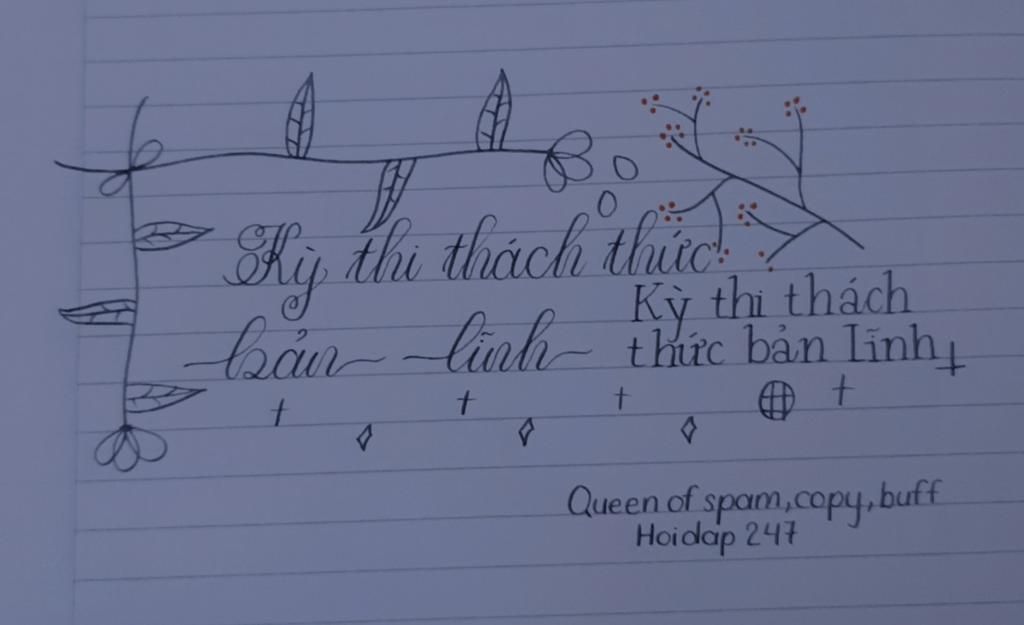 Kỳ thi thách thức
bản lĩnh
Kỳ thi thách
thức bản lĩnh
Queen of spam, copy, buff
Hoidap 247